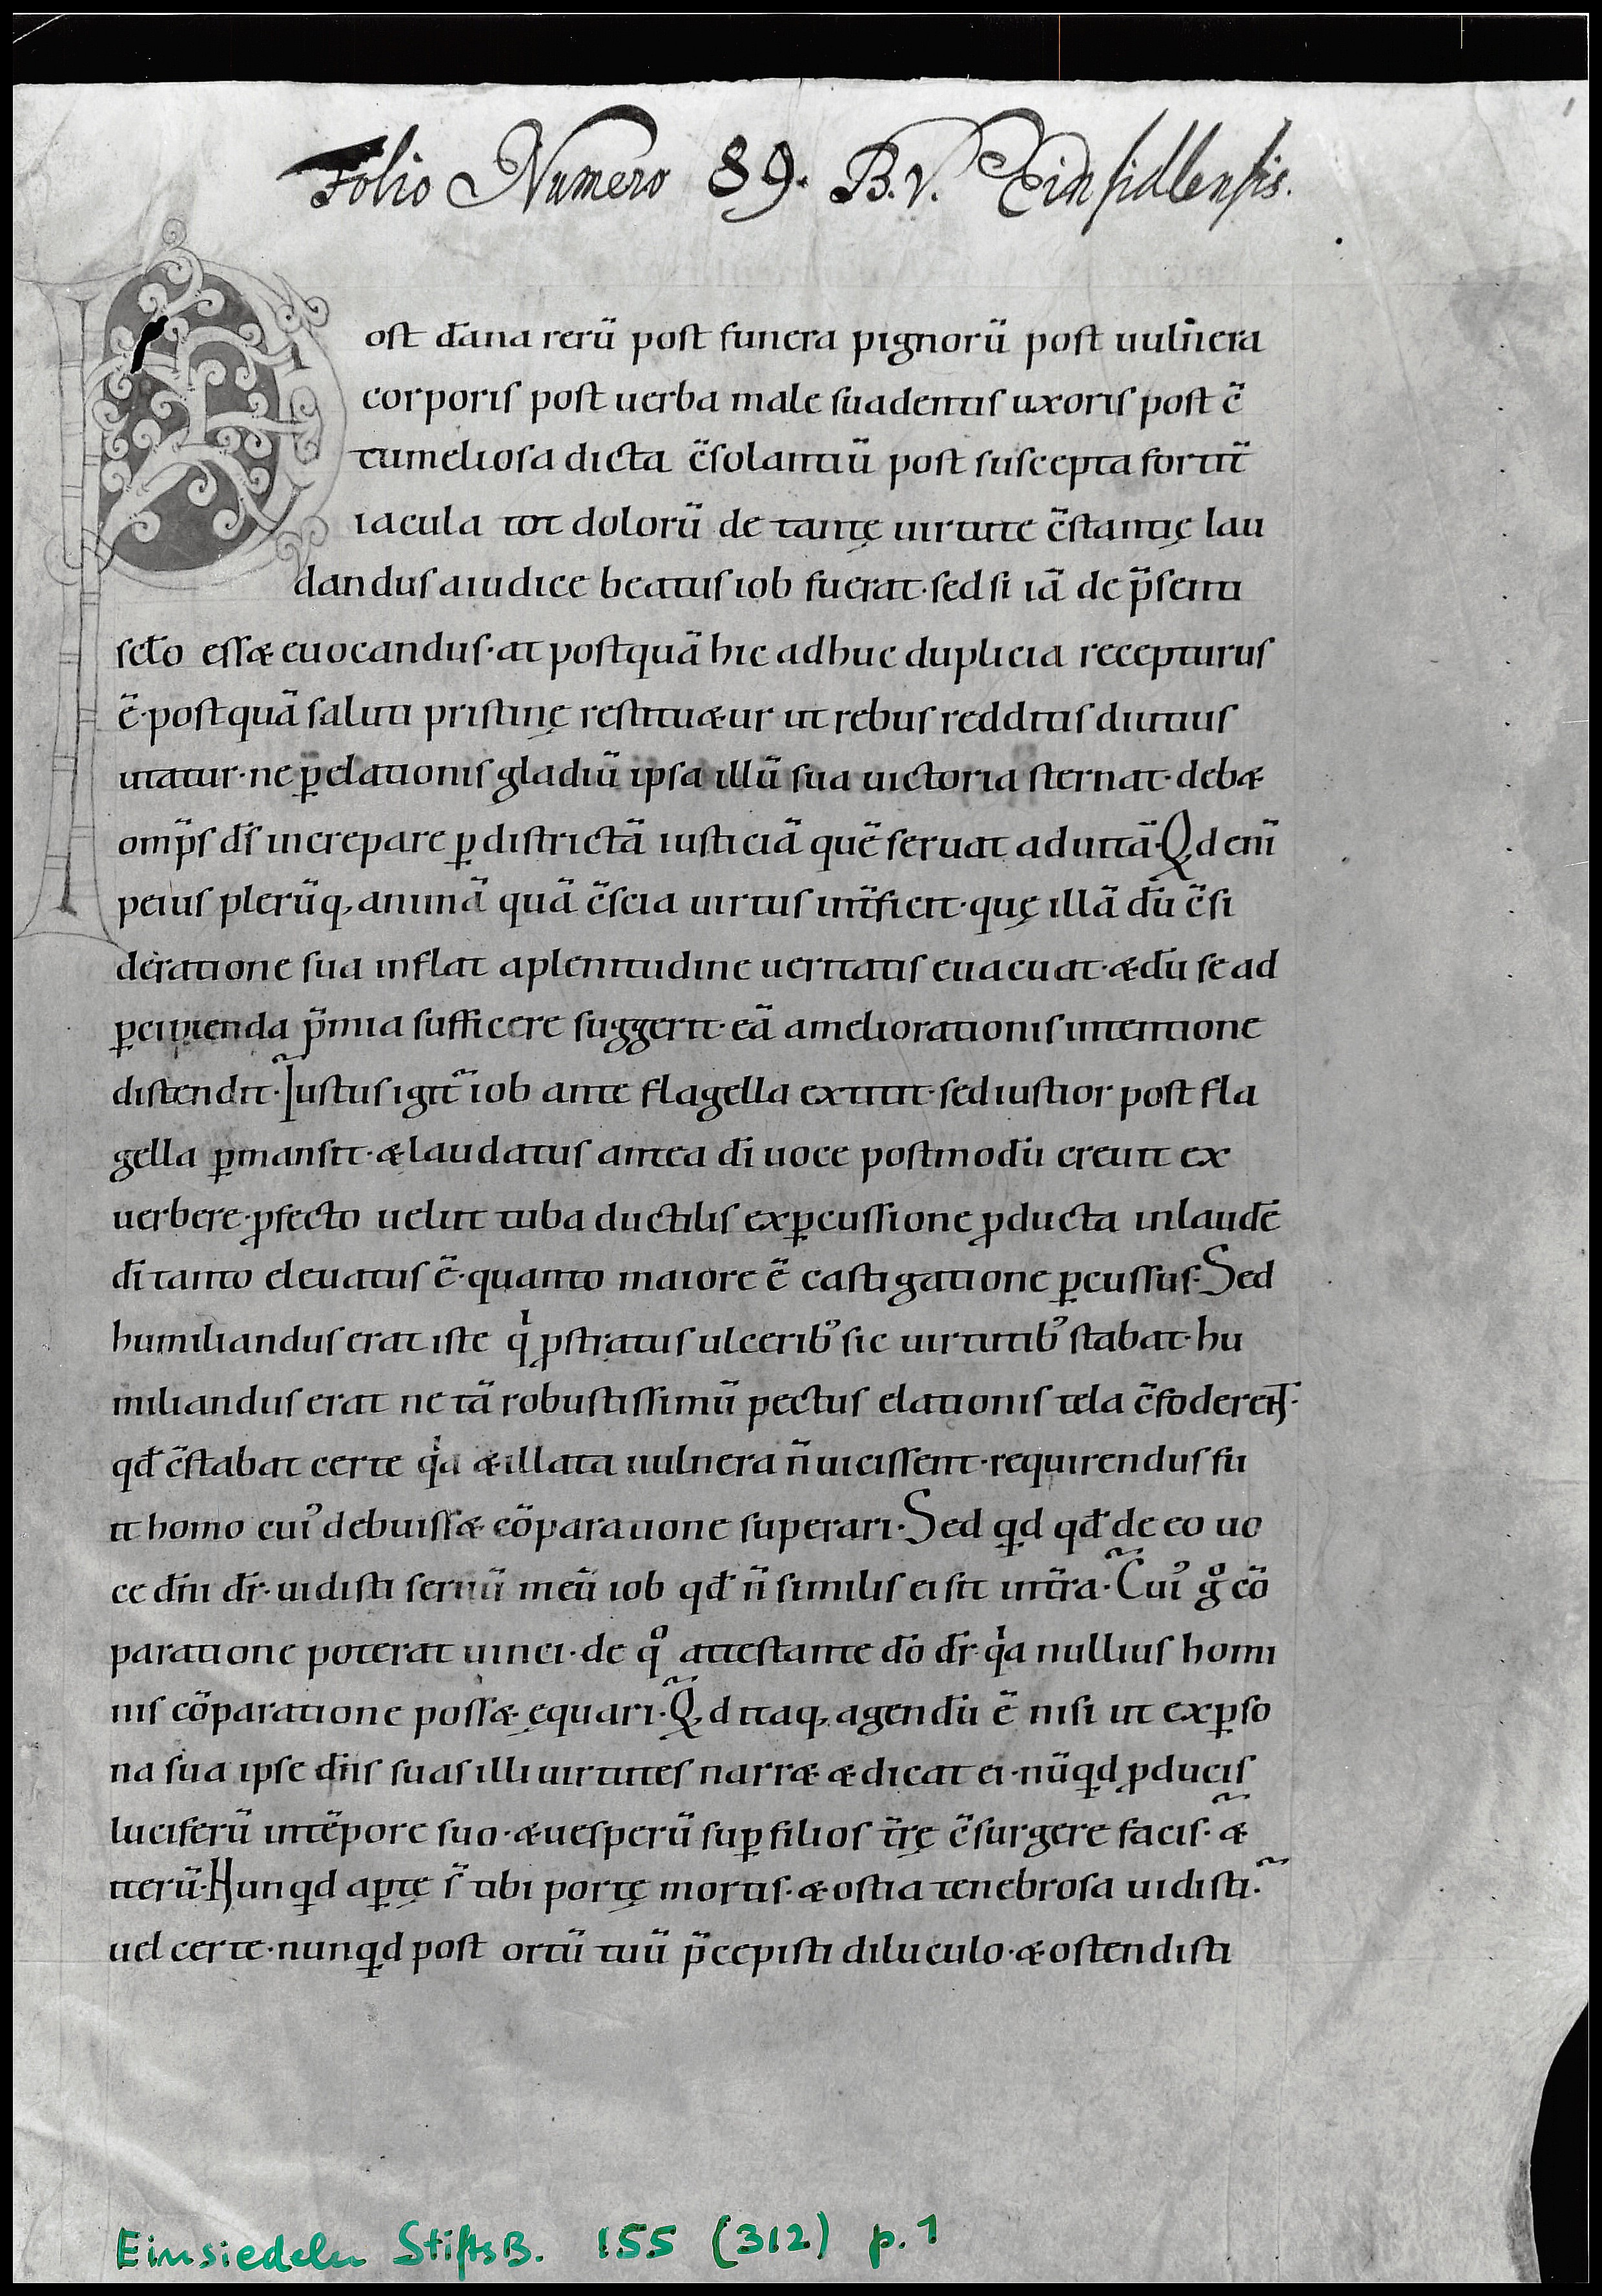 Folio Numero 89. B.V. Einsidlensis.
Post da̅na rerū post funera pignorū post uulnera
corporis post uerba male suadentis uxoris post c̄
tumeliosa dicta c̄solantiū post suscepta fortit̄
iacula tot dolorū de tantę uirtute c̄stantię lau
dandus a iudice beatus iob fuerat· sed si iā de p̄senti
sclo essæ euocandus· at postquā hic adhuc duplicia recepturus
ē· postquā saluti pristinę restituætur ut rebus redditis diutius
utatur· ne ꝑ elationis gladiū ipsa illū sua uictoria sternat· debæ
omp̄s ds̄ increpare ꝑ districtā iusticiā quē seruat ad uitā· Qd eni̅
peius plerūq, animā quā c̄scia uirtus int̄ficit· quę illā dū c̄si
deratione sua inflat a plenitudine ueritatis euacuat· æ dū se ad
ꝑcipienda p̄mia sufficere suggerit· eā a meliorationis intentione
distendit· Iustus igit̄ iob ante flagella extitit· sed iustior post fla
gella ꝑmansit· æ laudatus antea dī uoce postmodū creuit ex
uerbere· ꝓfecto uelut tuba ductilis ex ꝑcussione ꝓducta in laudē
dī tanto eleuatus ē· quanto maiore ē castigatione ꝑcussus· Sed
humiliandus erat iste qͥ ꝓstratus ulcerib᾽ sic uirtutib᾽ stabat· hu
miliandus erat ne tā robustissimū pectus elationis tela c̄foderent·
qđ c̄stabat certe qͥa æ illata uulnera n̄ uicissent· requirendus fu
it homo cui᾽ debuissæ cōparatione superari· Sed qd qđ de eo uo
ce dn̄i dr̄· uidisti seruū meū iob qđ n̄ similis ei sit int̄ra· Cui᾽ gͦ cō
paratione poterat uinci· de qͦ attestante dō dr̄· qͥa nullius homi
nis cōparatione possæ ęquari· Qd itaq, agendū ē nisi ut ex ꝑso
na sua ipse dn̄s suas illi uirtutes narræ æ dicat ei· nūqd ꝓducis
luciferū in tēpore suo· æ uesperū suꝑ filios t̄rę c̄surgere facis· æ
iterū· Nunqd aꝑtę s̄ tibi portę mortis· æ ostia tenebrosa uidisti·
uel certe· nunqd post ortū tuū p̄cepisti diluculo· æ ostendisti
Einsiedeln StiftsB. 155 (312) p. 1